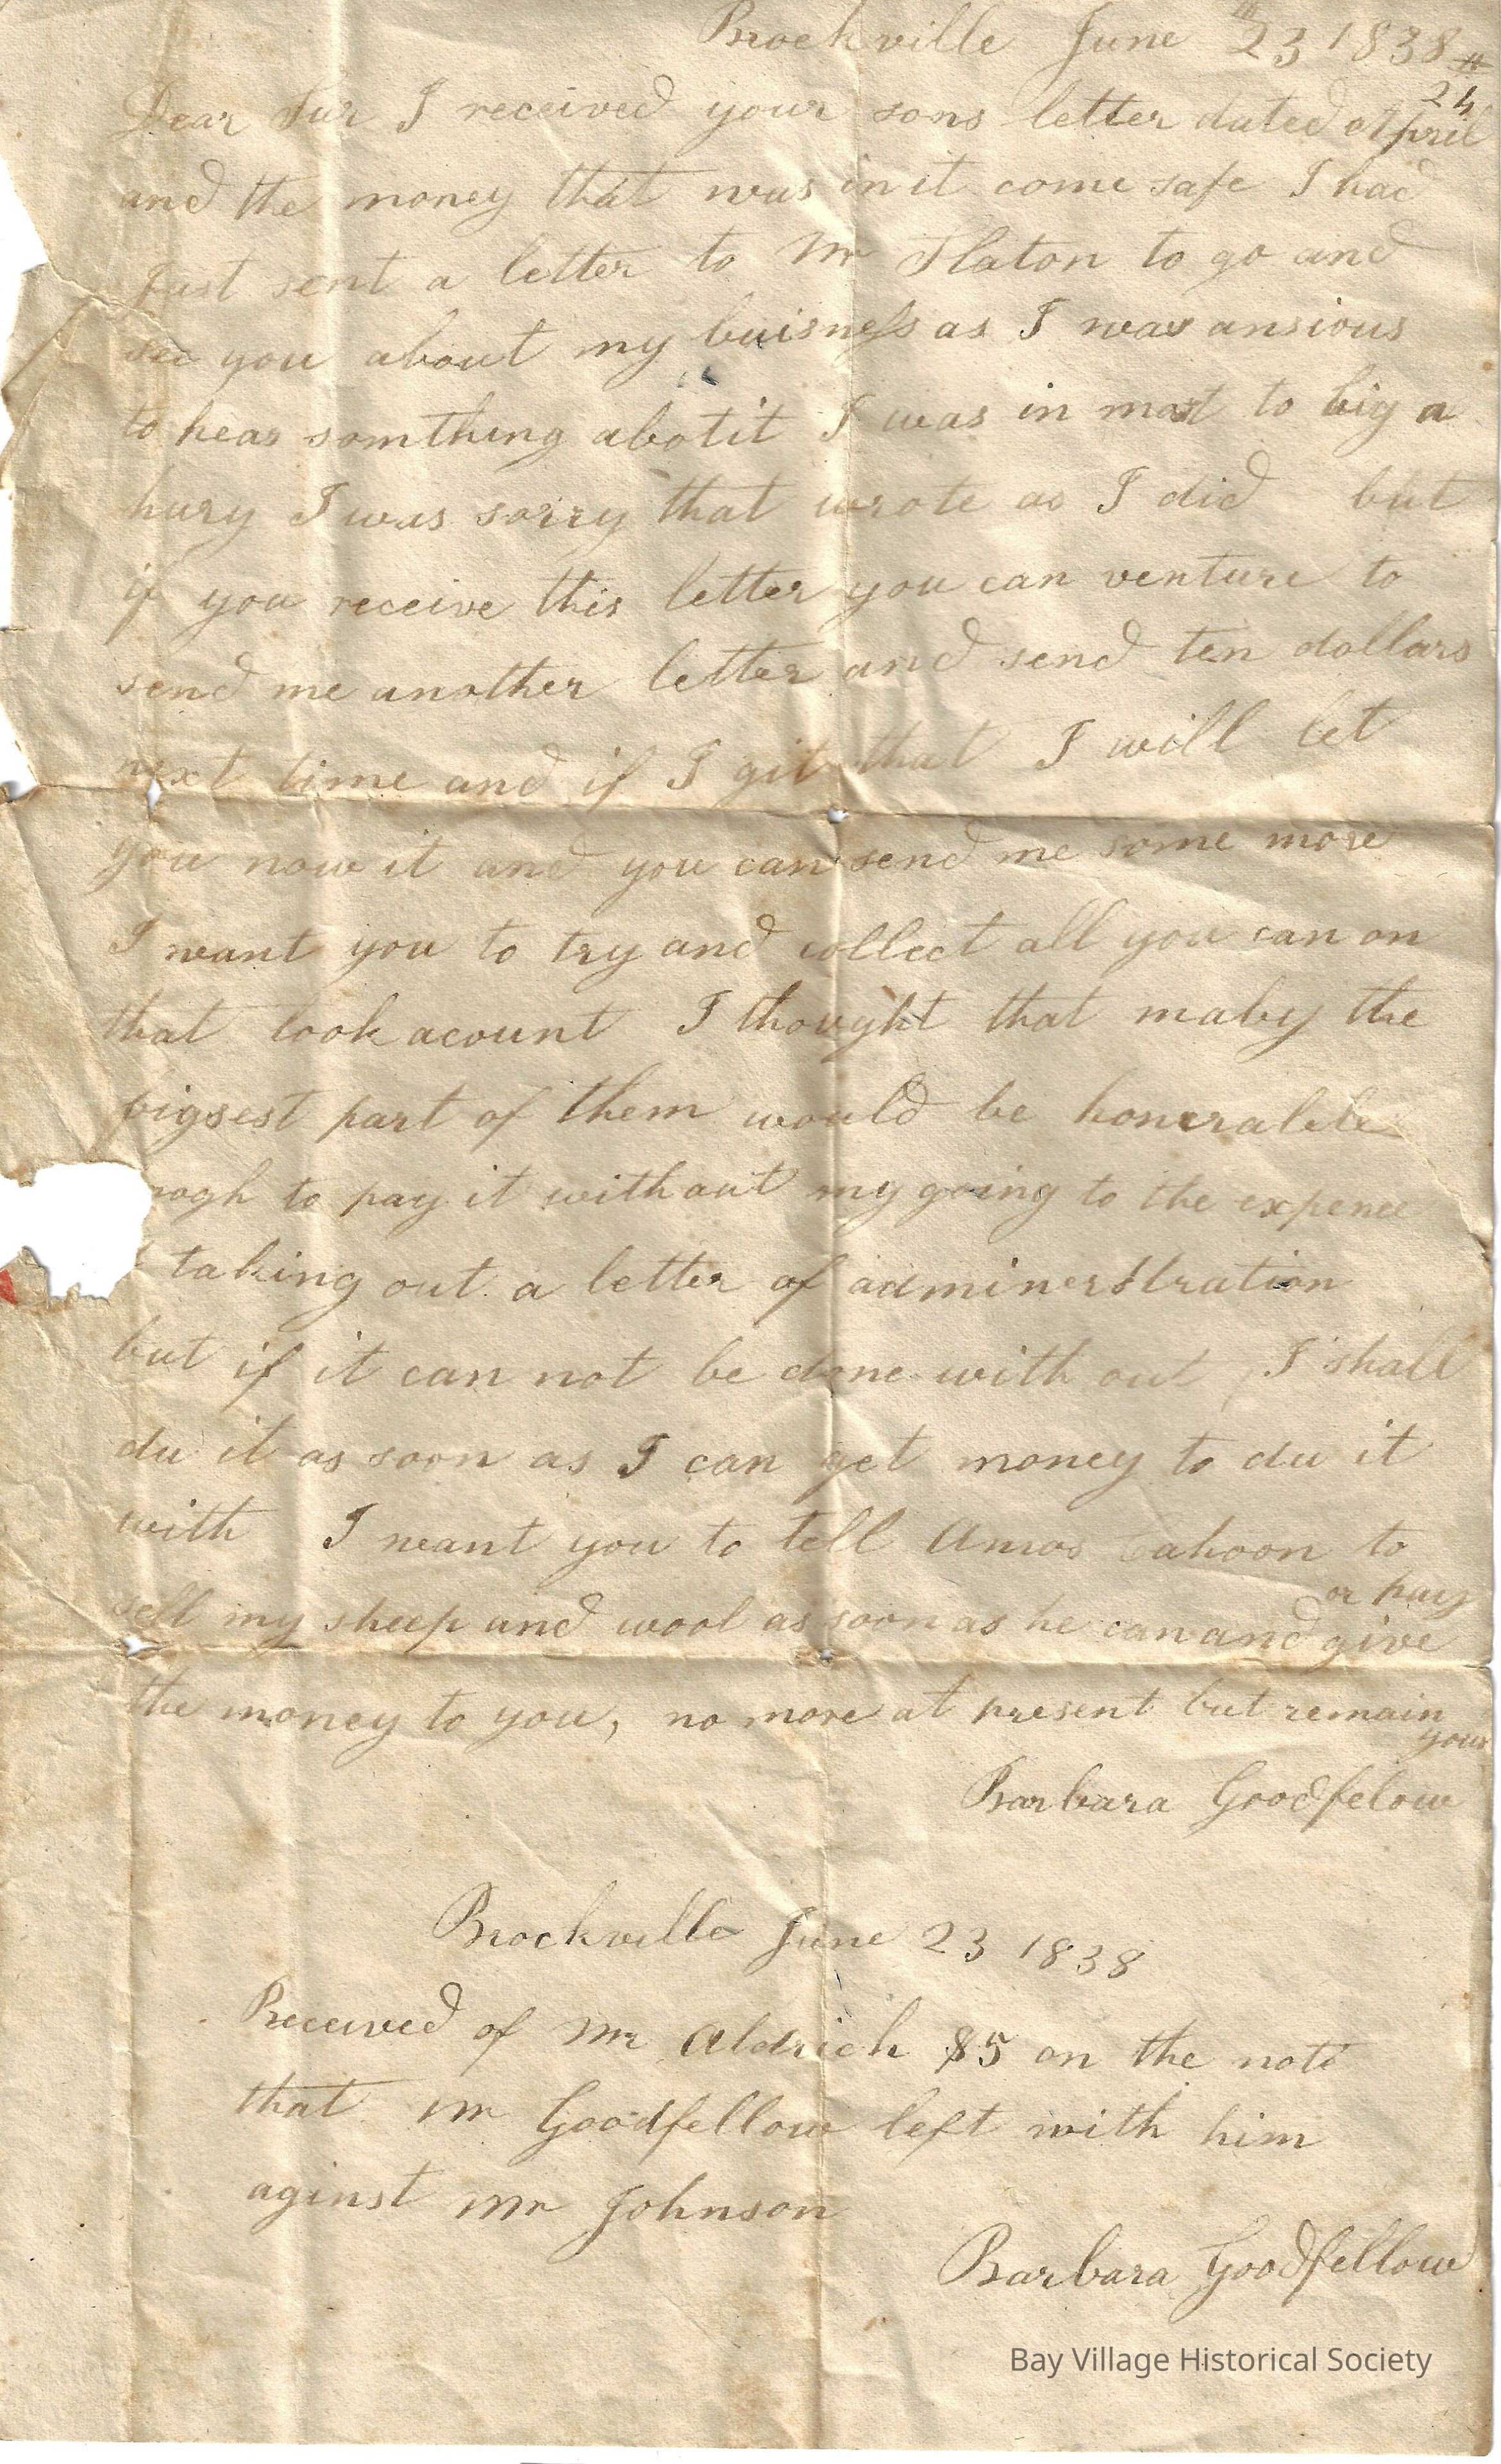 Brockville June 23 1838
24
Dear Sur I received your sons letter dated April
and the money that was in it come safe I had
just sent a letter to Mr Slaton to go and
see you about my buisness as I was ansious
to hear somthing abotit I was in most to big a
hury I was sorry that wrote as I did but
if you receive this letter you can venture to
send me another letter and send ten dollars
next time and if I git that I will let
you now it and you can send me some more
I want you to try and collect all you can on
that book acount I thought that maby the
bigsest part of them would be honerable
nogh to pay it without my going to the expence
taking out a letter of adminerstration
but if it can not be done with out I shall
du it as soon as I can get money to du it
with I want you to tell Amos Cahoon to
or pay
sell my sheep and wool as soon as he can and give
the money to you, no more at present but remain
your
Barbara Goodfelow
Brockville June 23 1838
Received of Mr Aldrich $5 on the note
that Mr Goodfellow left with him
aginst Mr Johnson
Barbara Goodfellow
Bay Village Historical Society